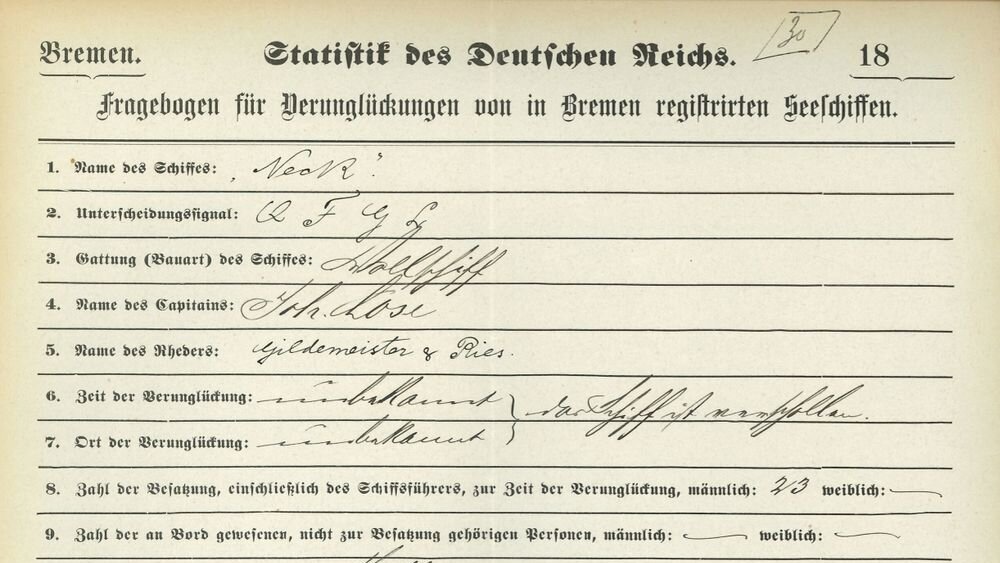 Bremen. Statistik des Deutschen Reichs. 30 18
Fragebogen für Verunglückungen von in Bremen registrirten Seeschiffen.
1. Name des Schiffes: „Neck".
2. Unterscheidungssignal: Q F G L
3. Gattung (Bauart) des Schiffes: Vollschiff
4. Name des Capitains: Joh. Lose
5. Name des Rheders: Gildemeister & Ries.
6. Zeit der Verunglückung: unbekannt } das Schiff ist verschollen.
7. Ort der Verunglückung: unbekannt
8. Zahl der Besatzung, einschließlich des Schiffsführers, zur Zeit der Verunglückung, männlich: 23 weiblich: —
9. Zahl der an Bord gewesenen, nicht zur Besatzung gehörigen Personen, männlich: — weiblich: —